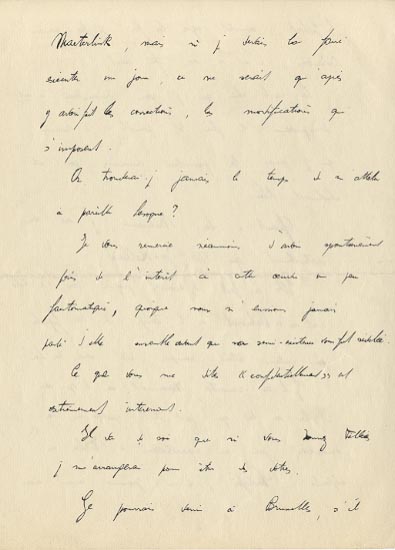 Maeterlinck, mais si je devais la faire
exécuter un jour, ce ne serait qu'après
y avoir fait les corrections, les modifications qui
s'imposent.
Où trouverai-je jamais le temps de m'atteler
à pareille besogne ?
Je vous remercie néanmoins d'avoir spontanément
pris de l'intérêt à cette œuvre un peu
fantomatique, quoique nous n'en ayons jamais
parlé ensemble avant que son existence vous fut révélée.
Ce que vous me dites "confidentiellement" est
extrêmement intéressant.
Il va de soi que si vous Pelléas
je m'arrangerai pour être des vôtres.
Je pourrais venir à Bruxelles, s'il